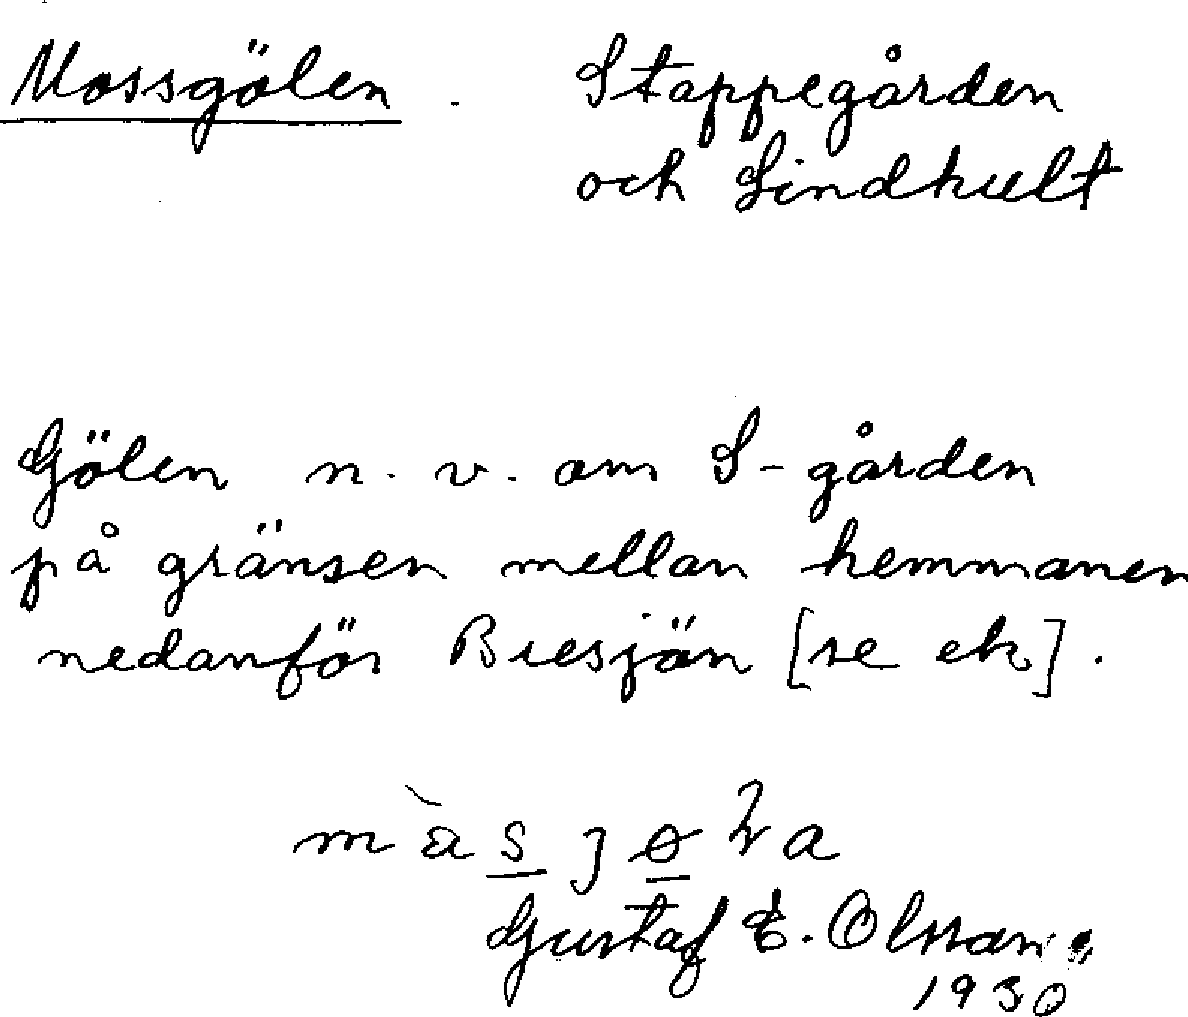 Mossgölen . Stappegården
och Lindhult
Gölen n. v. om S-gården
på gränsen mellan hemmanen
nedanför Bresjön [se ek].
Gustaf E. Olsson
1930